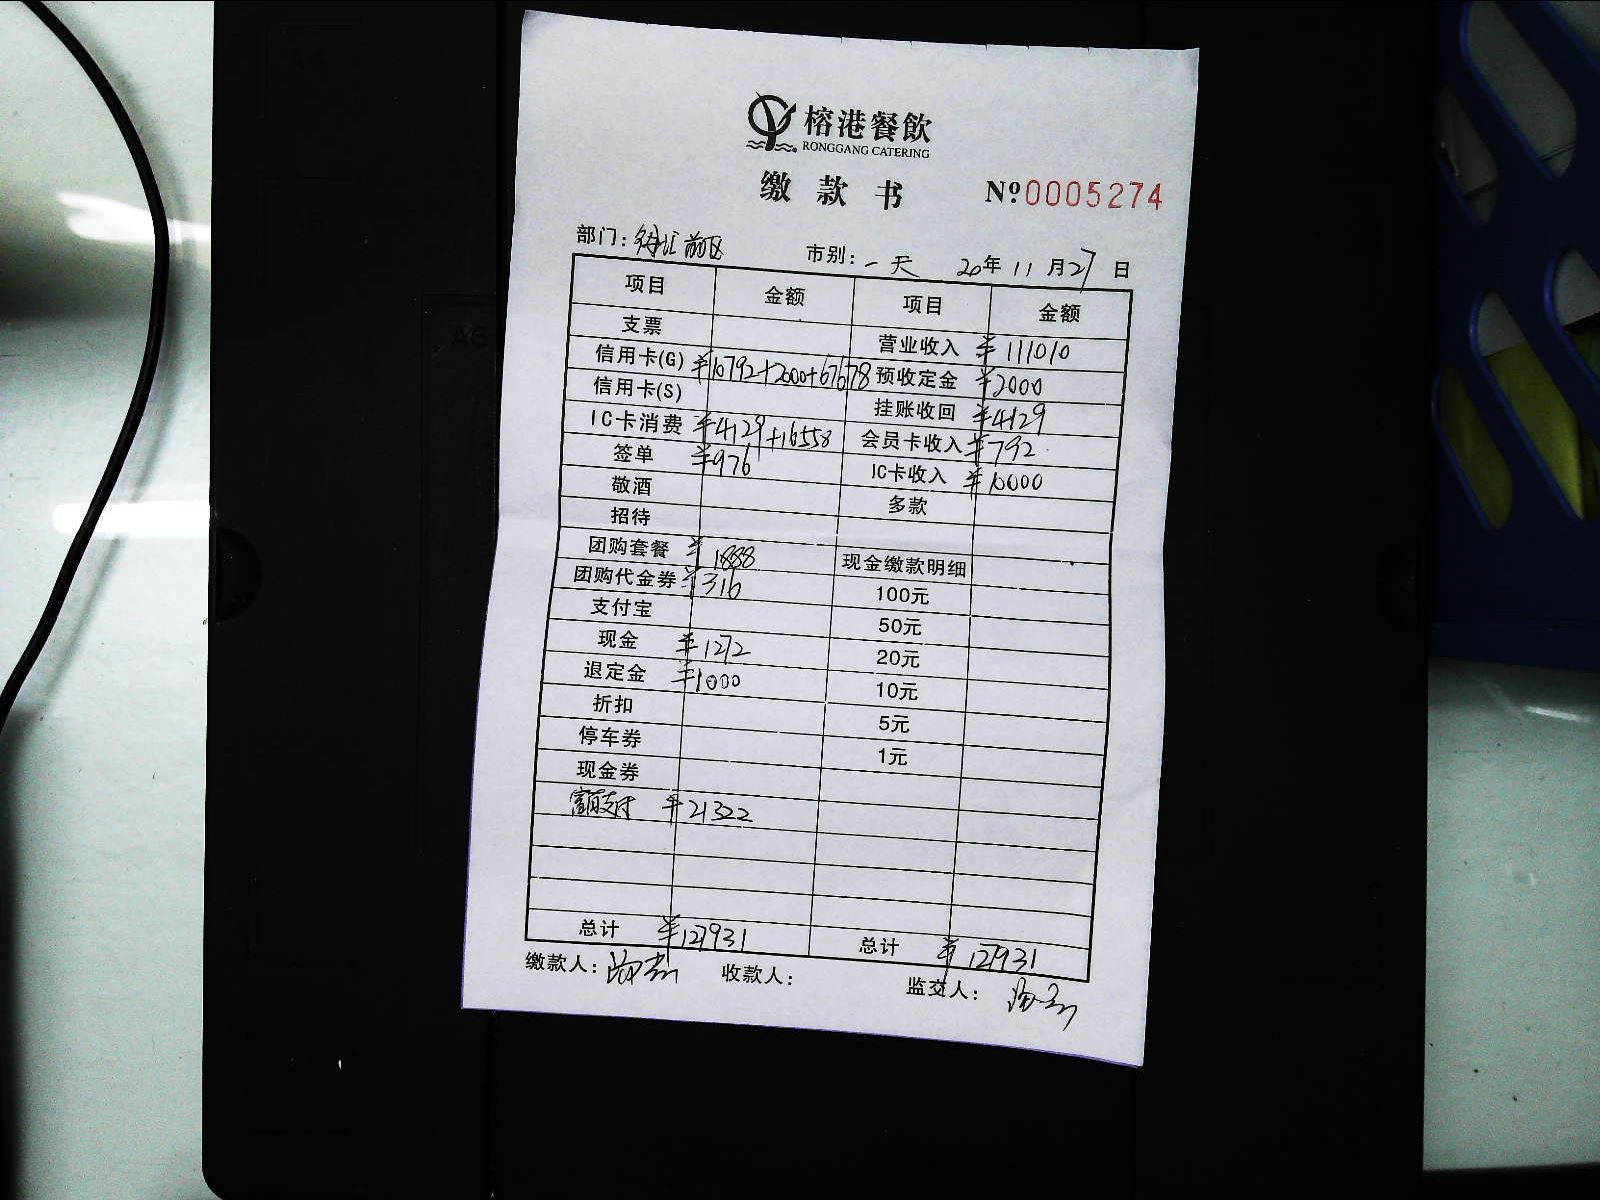 榕港餐飲
RONGGANG CATERING
缴款书 Nº0005274
部门：徐汇前区 市别：一天 20年11月27日
项目 金额 项目 金额
支票 营业收入 ¥111010
信用卡(G) ¥10792+2000+67678 预收定金 ¥2000
信用卡(S) 挂账收回 ¥4129
IC卡消费 ¥4129+16558 会员卡收入 ¥792
签单 ¥976 IC卡收入 ¥10000
敬酒 多款
招待
团购套餐 ¥1888 现金缴款明细
团购代金券 ¥316 100元
支付宝 50元
现金 ¥1272 20元
退定金 ¥1000 10元
折扣 5元
停车券 1元
现金券
支付 ¥21322
总计 ¥127931 总计 ¥127931
缴款人： 收款人： 监交人：
A6